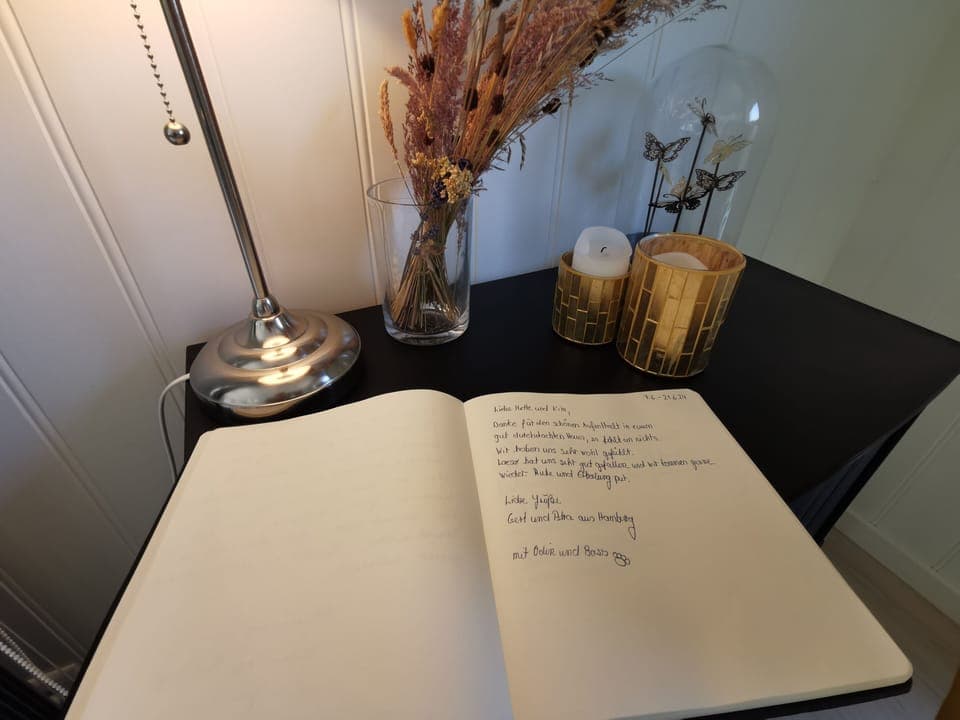 7.6. - 21.6.24
Liebe Mette und Kim,
Danke für den schönen Aufenthalt in eurem
gut durchdachten Haus, es fehlt an nichts.
Wir haben uns sehr wohl gefühlt.
Loesø hat uns sehr gut gefallen und wir kommen gerne
wieder. Ruhe und Erholung pur.
Liebe Grüße
Gert und Petra aus Hamburg
mit Odin und